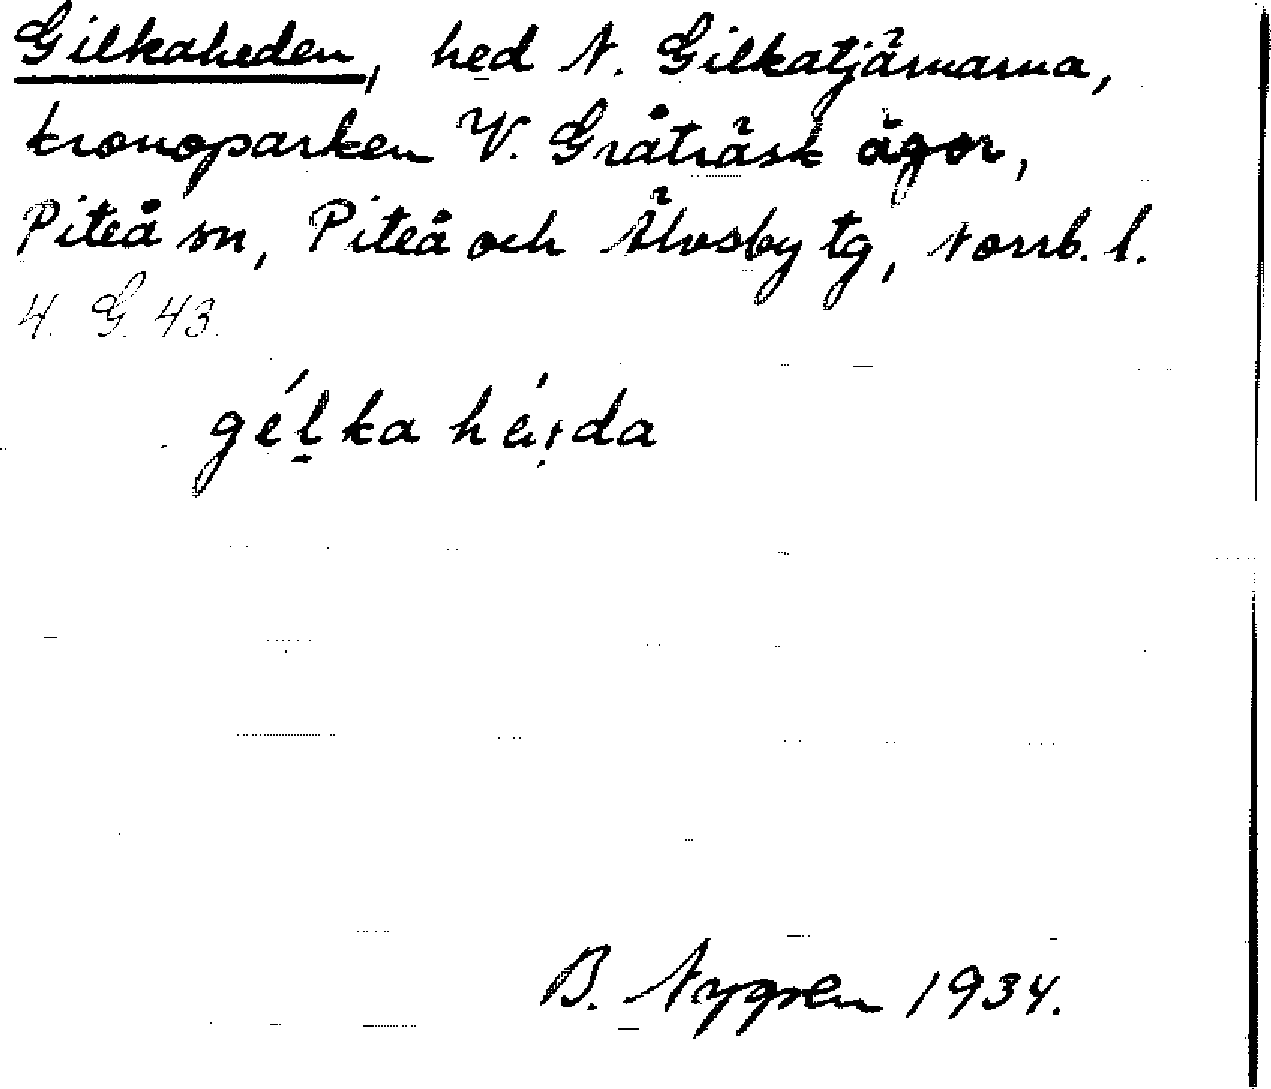 Gilkaheden, hed N. Gilkatjärnarna,
kronoparken V. Gråträsk ägor,
Piteå sn, Piteå och Älvsby tg, Norrb. l.
4. G. 43.
gélka héi̩da
B. Nygren 1934.